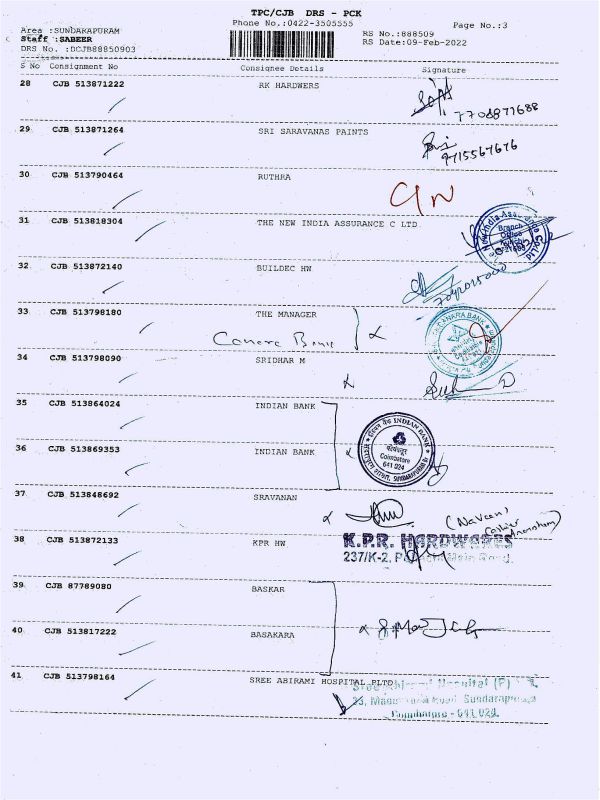 TPC/CJB DRS - PCK
Phone No.:0422-3505555
Page No.:3
Area :SUNDARAPURAM
Staff :SABEER
RS No.:888509
DRS No. :DCJB88850903
RS Date:09-Feb-2022
S No Consignment No Consignee Details Signature
28 CJB 513871222 RK HARDWERS
7708877688
29 CJB 513871264 SRI SARAVANAS PAINTS
9715567676
30 CJB 513790464 RUTHRA
31 CJB 513818304 THE NEW INDIA ASSURANCE C LTD
Branch
Office
32 CJB 513872140 BUILDEC HW
33 CJB 513798180 THE MANAGER
Canara Bank
CANARA BANK
34 CJB 513798090 SRIDHAR M
35 CJB 513864024 INDIAN BANK
INDIAN BANK
Coimbatore
641 024
36 CJB 513869353 INDIAN BANK
37 CJB 513848692 SRAVANAN
(Naveen)
38 CJB 513872133 KPR HW
K.P.R. HARDWARES
237/K-2, Main Road.
39 CJB 87789080 BASKAR
40 CJB 513817222 BASAKARA
41 CJB 513798164 SREE ABIRAMI HOSPITAL PLTD
Hospital (P)
33, Sundarapuram
Coimbatore - 641 024